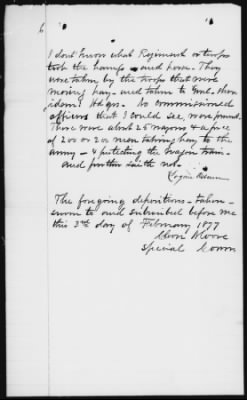 6
I dont know what Regiment or troops
took the lumps and hoes. They
were taken by the troops that were
moving hay - and taken to Genl. Sher
idens Hdqrs. No Commissioned
officers that I could see, were present.
There were about 25 wagons & a force
of 200 or 20 men taking hay to the
army - & protecting the wagon train.
And further saith not.
The foregoing depositions - taken -
sworn to and subscribed before me
this 3rd day of February 1877
Cleon Moore
Special Comm